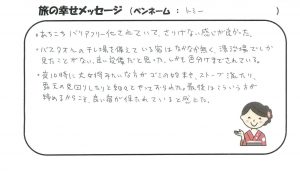 旅の幸せメッセージ（ペンネーム：トミー）
・あちこちバリアフリー化されていて、さりげない感じが良かった。
・バスタオルのテレ場を備えている宿はなかなか無く、湯治場でしか
見たことがない。良い設備だと思った。しかも色分けまでされている。
・夜10時に大女将みたいな方がゴミの始末、ストーブ消したり、
露天の見回りしたりと動いてやっておられた。最後はこういう方が
締めるからこそ、良い宿が保たれていると感じた。